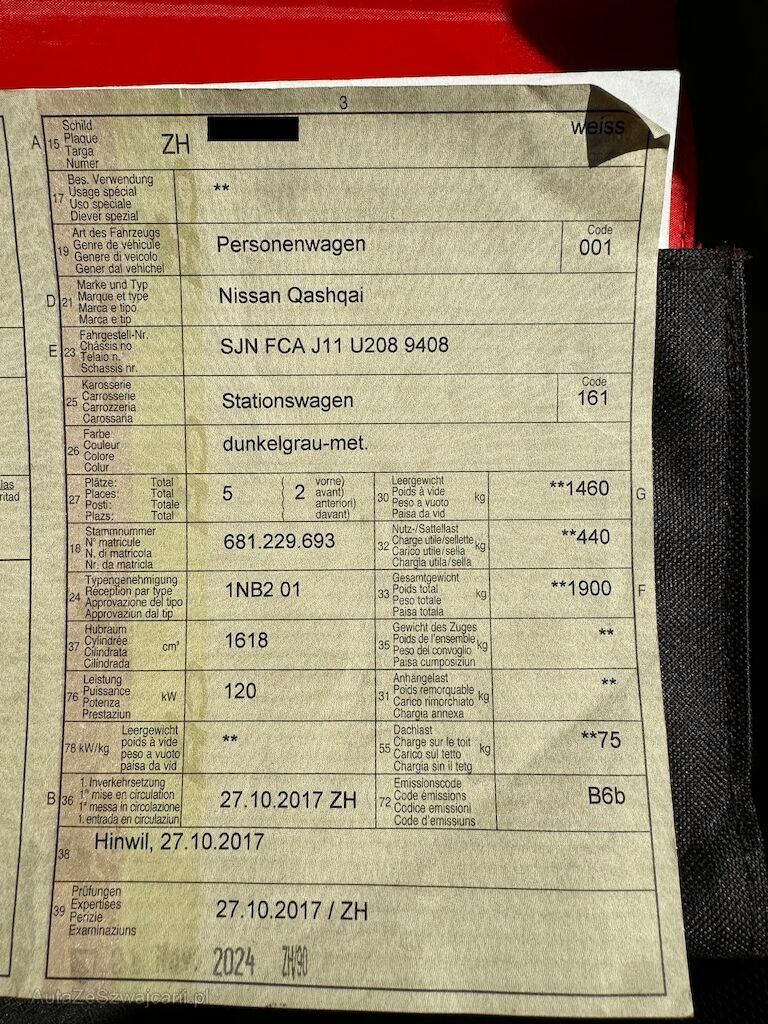 3
A 15 Schild
Plaque
Targa
Numer
ZH
weiss
17 Bes. Verwendung
Usage spécial
Uso speciale
Diever spezial
**
19 Art des Fahrzeugs
Genre de véhicule
Genere di veicolo
Gener dal vehichel
Personenwagen
Code
001
D 21 Marke und Typ
Marque et type
Marca e tipo
Marca e tip
Nissan Qashqai
E 23 Fahrgestell-Nr.
Châssis no
Telaio n.
Schassis nr.
SJN FCA J11 U208 9408
25 Karosserie
Carrosserie
Carrozzeria
Carossaria
Stationswagen
Code
161
26 Farbe
Couleur
Colore
Colur
dunkelgrau-met.
27 Plätze: Total
Places: Total
Posti: Totale
Plazs: Total
5 ( 2 vorne)
avant)
anteriori)
davant)
30 Leergewicht
Poids à vide
Peso a vuoto
Paisa da vid
kg
**1460
G
18 Stammnummer
N° matricule
N. di matricola
Nr. da matricla
681.229.693
32 Nutz-/Sattellast
Charge utile/sellette
Carico utile/sella
Chargia utila/sella
kg
**440
24 Typengenehmigung
Réception par type
Approvazione del tipo
Approvaziun dal tip
1NB2 01
33 Gesamtgewicht
Poids total
Peso totale
Paisa totala
kg
**1900
F
37 Hubraum
Cylindrée
Cilindrata
Cilindrada
cm³
1618
35 Gewicht des Zuges
Poids de l'ensemble
Peso del convoglio
Paisa cumposiziun
kg
**
76 Leistung
Puissance
Potenza
Prestaziun
kW
120
31 Anhängelast
Poids remorquable
Carico rimorchiato
Chargia annexa
kg
**
78 kW/kg Leergewicht
poids à vide
peso a vuoto
paisa da vid
**
55 Dachlast
Charge sur le toit
Carico sul tetto
Chargia sin il tetg
kg
**75
B 36 1. Inverkehrsetzung
1re mise en circulation
1a messa in circolazione
1. entrada en circulaziun
27.10.2017 ZH
72 Emissionscode
Code émissions
Codice emissioni
Code d'emissiuns
B6b
38 Hinwil, 27.10.2017
39 Prüfungen
Expertises
Perizie
Examinaziuns
27.10.2017 / ZH
Nov. 2024 ZH/90
AutaZeSzwajcarii.pl